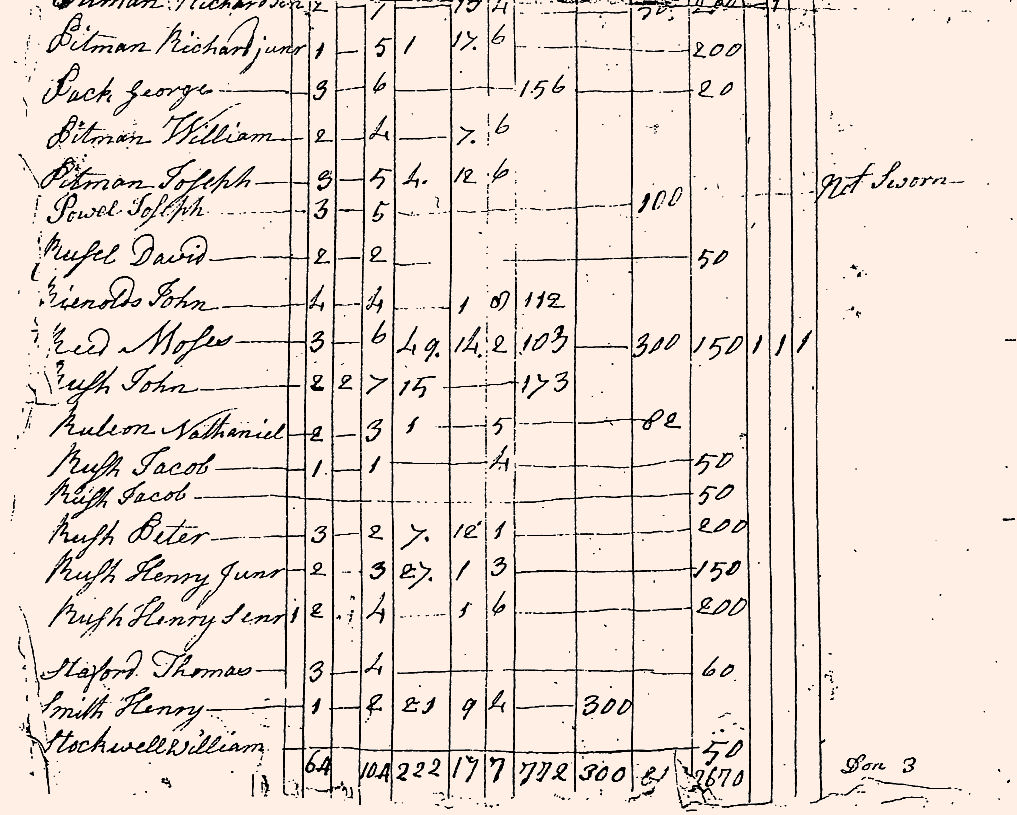 Pitman Richardson 2 7 4
Pitman Richard junr 1 — 5 1 17. 6 200
Pack George 3 — 6 156 20
Pitman William 2 — 4 7. 6
Pitman Joseph 3 — 5 4. 12 6 Not Sworn
Powel Joseph 3 — 5 100
Rusel David 2 — 2 50
Rienolds John 4 — 4 1 8 112
Reed Moses 3 — 6 49. 14. 2 103 — 300 150 1 1 1
Rush John 2 2 7 15 — 173
Ruleon Nathaniel 2 — 3 1 5 82
Rush Jacob 1 — 1 4 50
Rush Jacob 50
Rush Peter 3 — 2 7. 12 1 200
Rush Henry Junr 2 3 27. 1 3 150
Rush Henry Senr 1 2 4 1 6 200
Staford Thomas 3 — 4 60
Smith Henry 1 — 2 21 9 4 — 300
Stockwell William 50
64 104 222 17 7 772 300 2670 Don 3